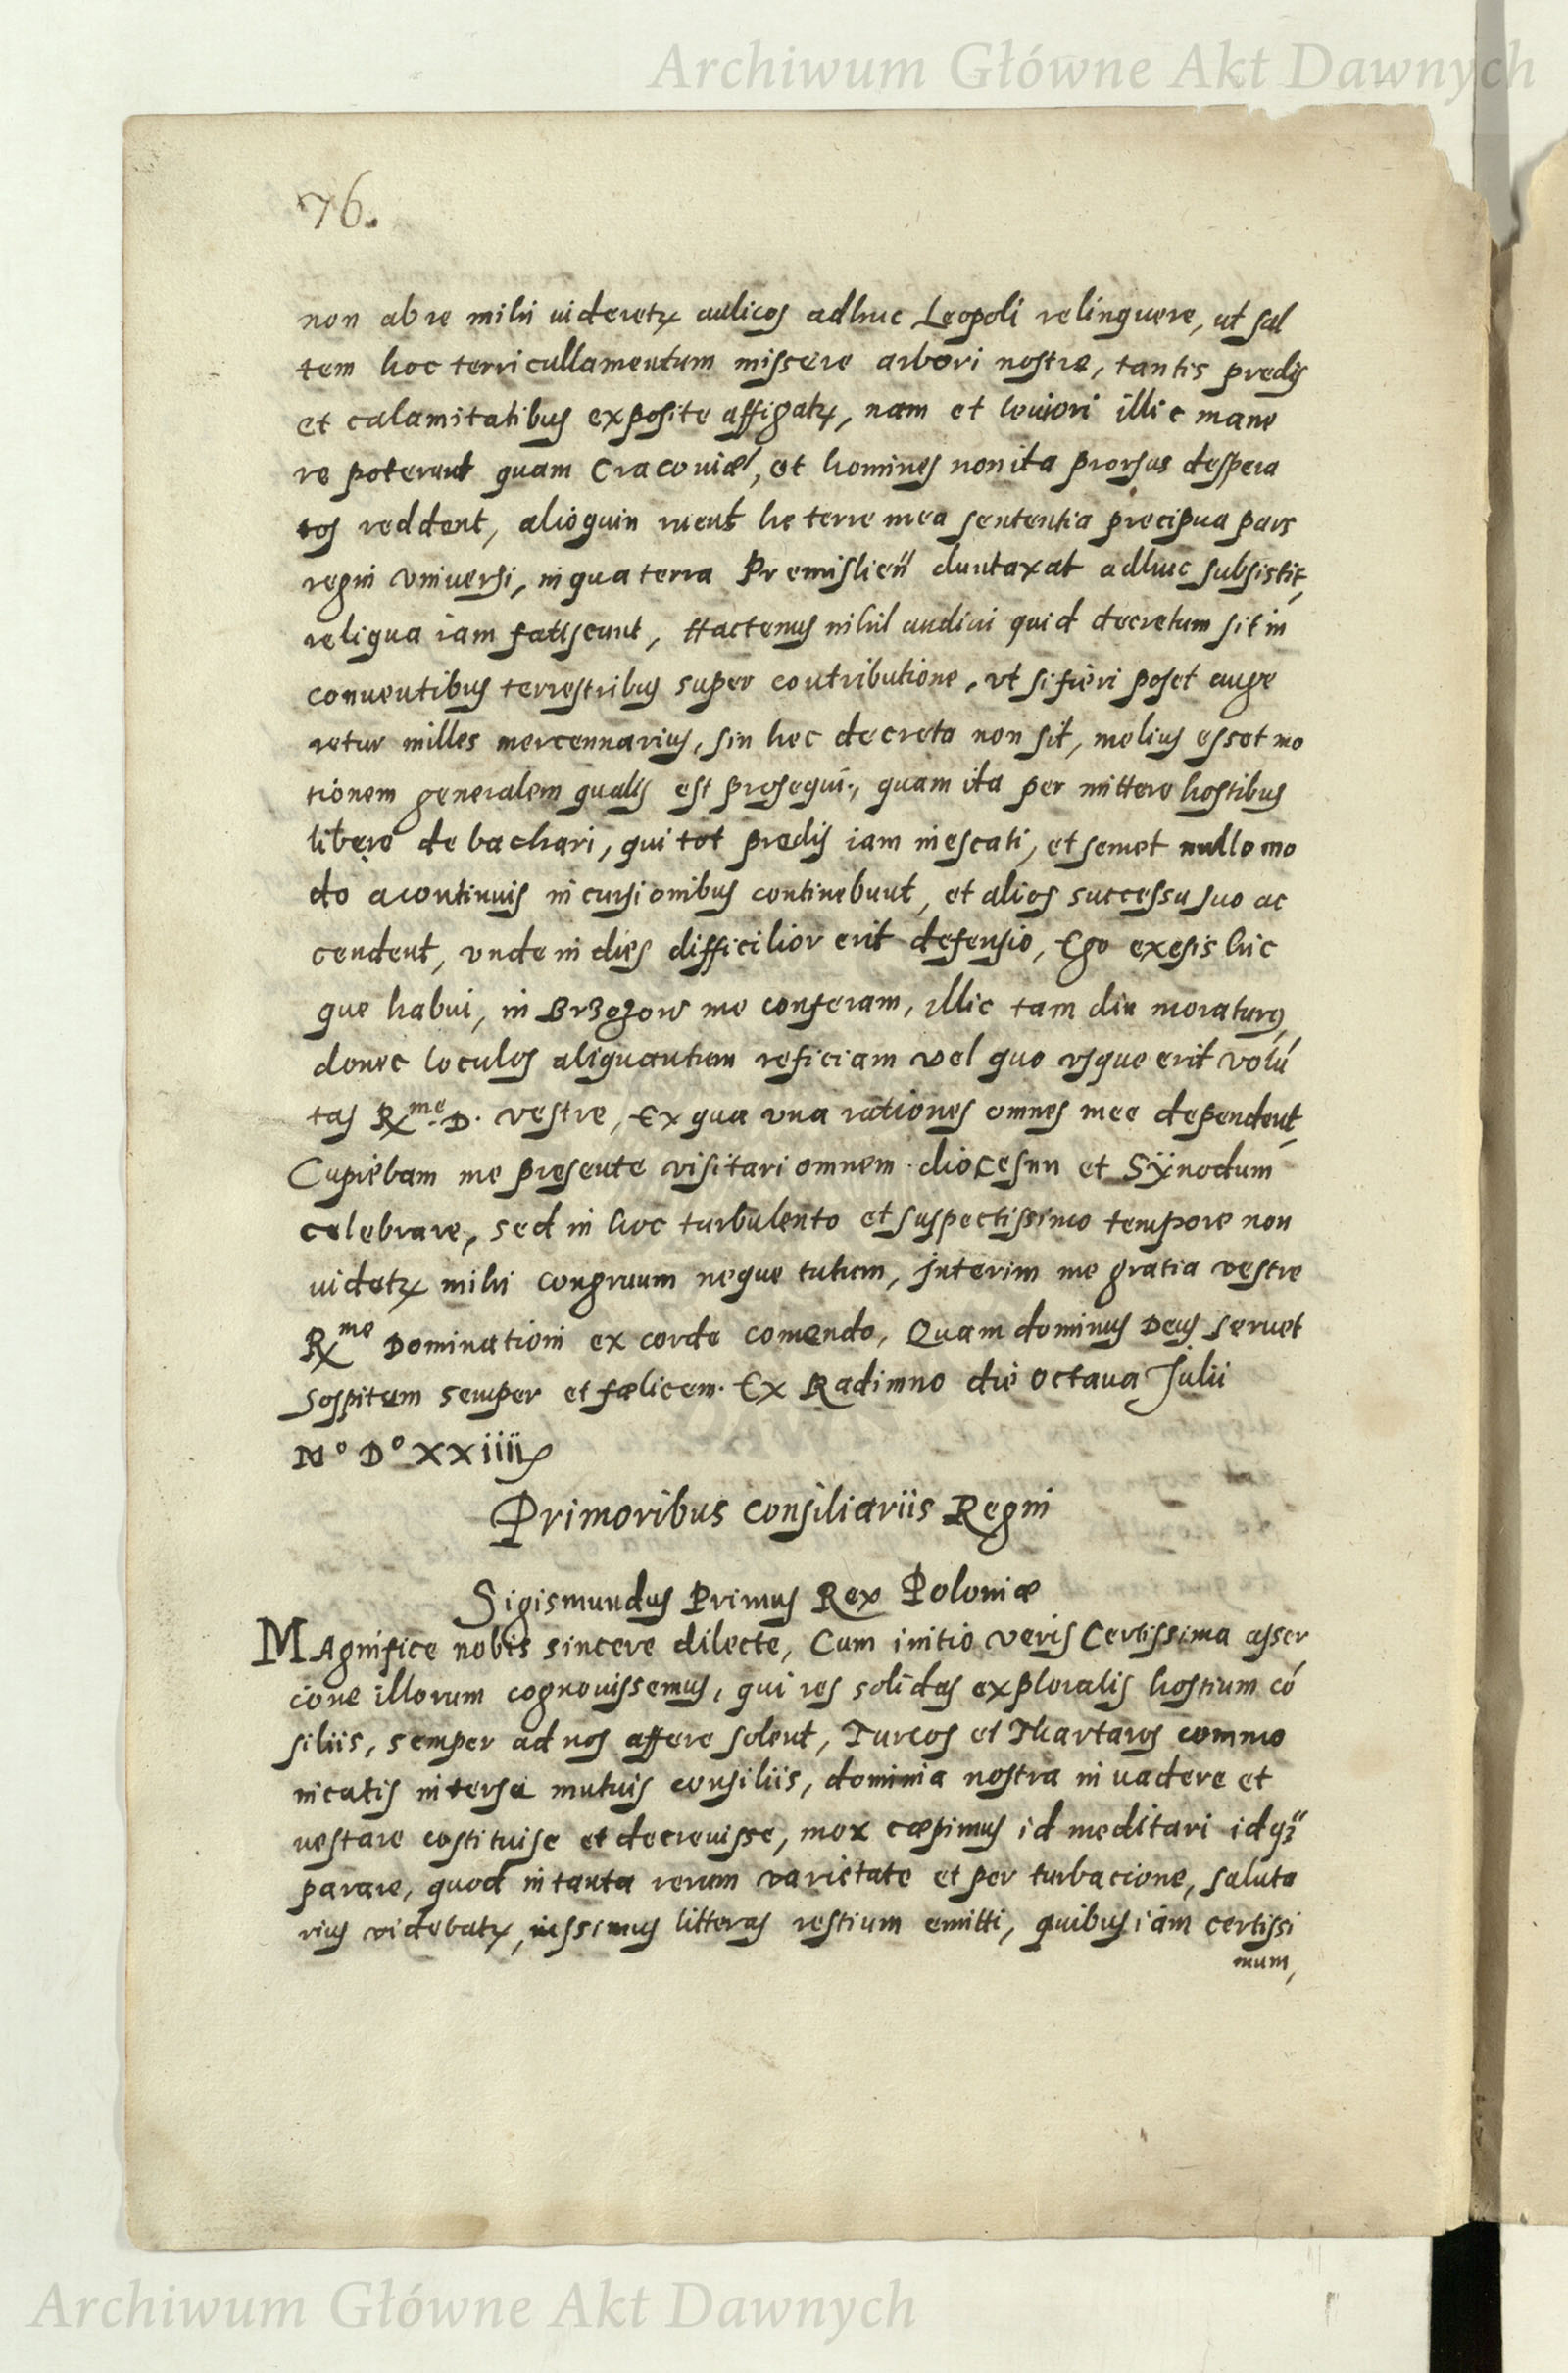 Archiwum Główne Akt Dawnych
76.
non ab re mihi uideretr aulicos adhuc Leopoli relinquere, ut sal
tem hoc terricullamentum missere arbori nostre, tantis predis
et calamitatibus exposite affigatr, nam et leuiori illic mane
re poterunt quam Cracouiæ, et homines non ita prorsus despera
tos reddent, alioquin ruent he terre mea sententia precipua pars
regni vniuersi, in qua terra Premislien duntaxat adhuc subsistit,
reliqua iam fatiscunt, Hactenus nihil audiui quid decretum sit in
conuentibus terrestribus super contributione, vt si fieri poset auge
retur milles mercennarius, sin hec decreta non sit, melius esset mo
tionem generalem qualis est prosequi, quam ita per mittere hostibus
libere de bachari, qui tot predis iam inescati, et semet nullo mo
do a continuis in cursionibus continebunt, et alios successu suo ac
cendent, vnde in dies difficilior erit defensio, Ego exesis hic
que habui, in Brzozow me conferam, illic tam diu moraturus,
donec loculos aliquantum reficiam vel quo vsque erit volū
tas Rme. D. vestre, Ex qua vna rationes omnes mee dependent,
Cupiebam me presente visitari omnem diocesim et Sÿnodum
celebrare, sed in hoc turbulento et suspectissimo tempore non
uidetr mihi congruum neque tutum, interim me gratia vestre
Rme Dominationi ex corde comendo, Quam dominus Deus seruet
Sospitem semper et fælicem. Ex Radimno die octaua Julii
Mo Do XXiiii
Primoribus Consiliariis Regni
Sigismundus Primus Rex Poloniæ
MAgnifice nobis sincere dilecte, Cum initio veris Certissima asser
cione illorum cognouissemus, qui res solidas exploratis hostium cō
siliis, semper ad nos affere solent, Turcos et Thartaros commo
nicatis inter se mutuis consiliis, dominia nostra in uadere et
vestare costituise et decreuisse, mox cæpimus id meditari idq3
parare, quod in tanta rerum varietate et per turbacione, saluta
rius videbatr, iussimus litteras restium emitti, quibus iam certissi
mum,
Archiwum Główne Akt Dawnych